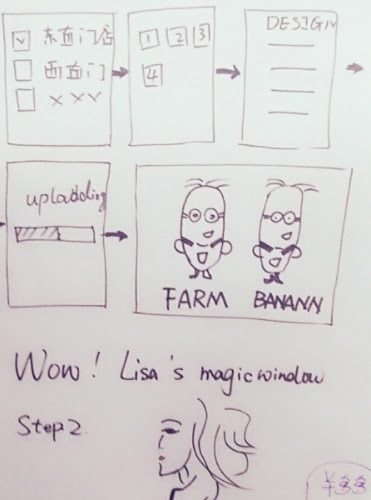 东面门店
西面门
×××
1 2 3
4
DESIGN
uploading
FARM BANANN
Wow! Lisa's magic window
Step 2.
¥33